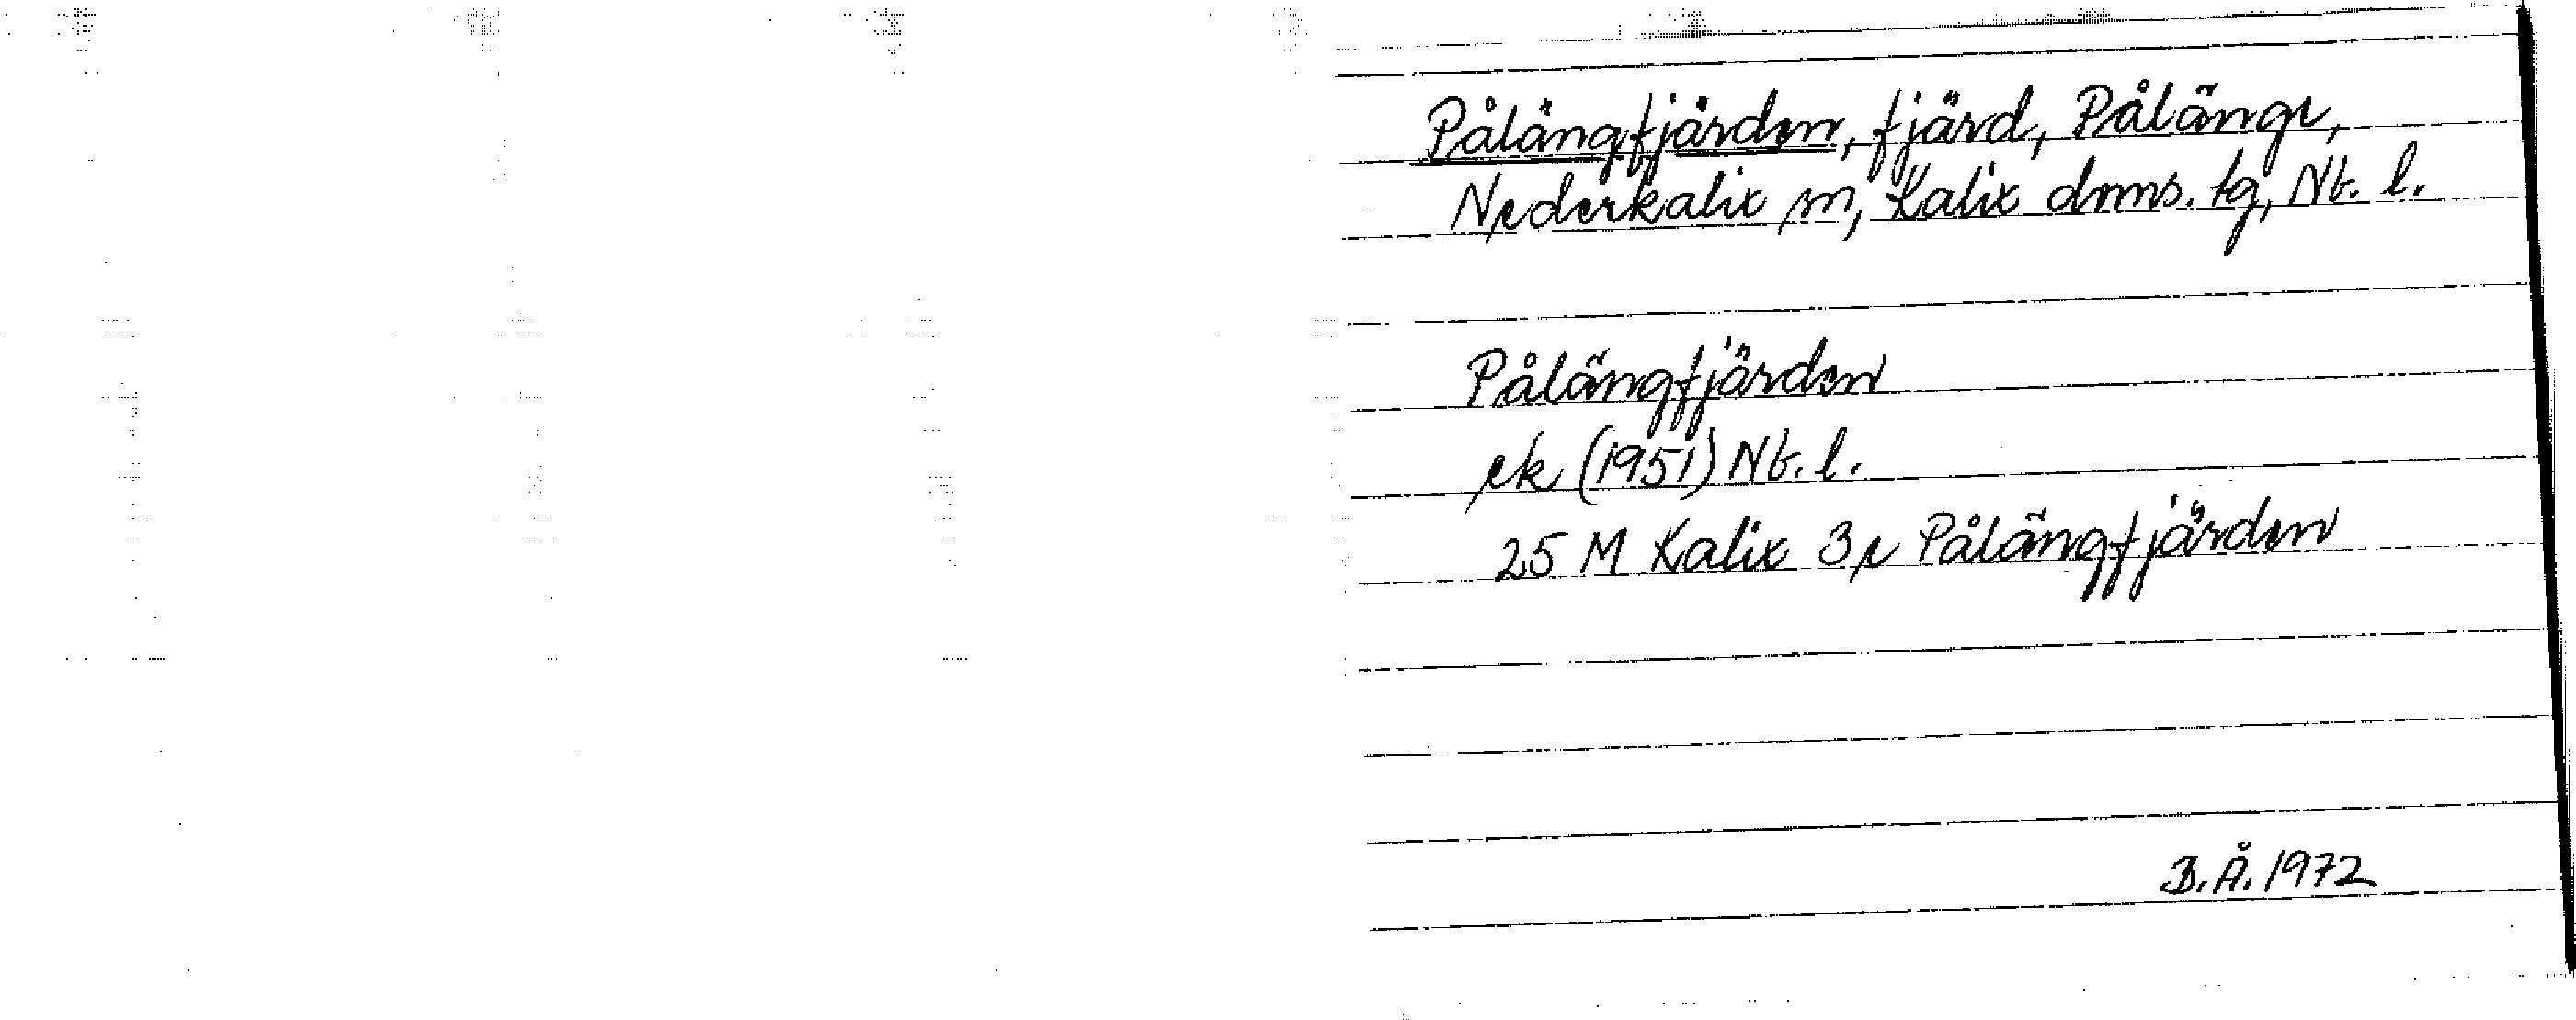 Pålängfjärden, fjärd, Pålänge,
Nederkalix sn, Kalix doms. tg, Nb. l.
Pålängfjärden
ek (1951) Nb. l.
25 M Kalix 3e Pålängfjärden
B.Å. 1972